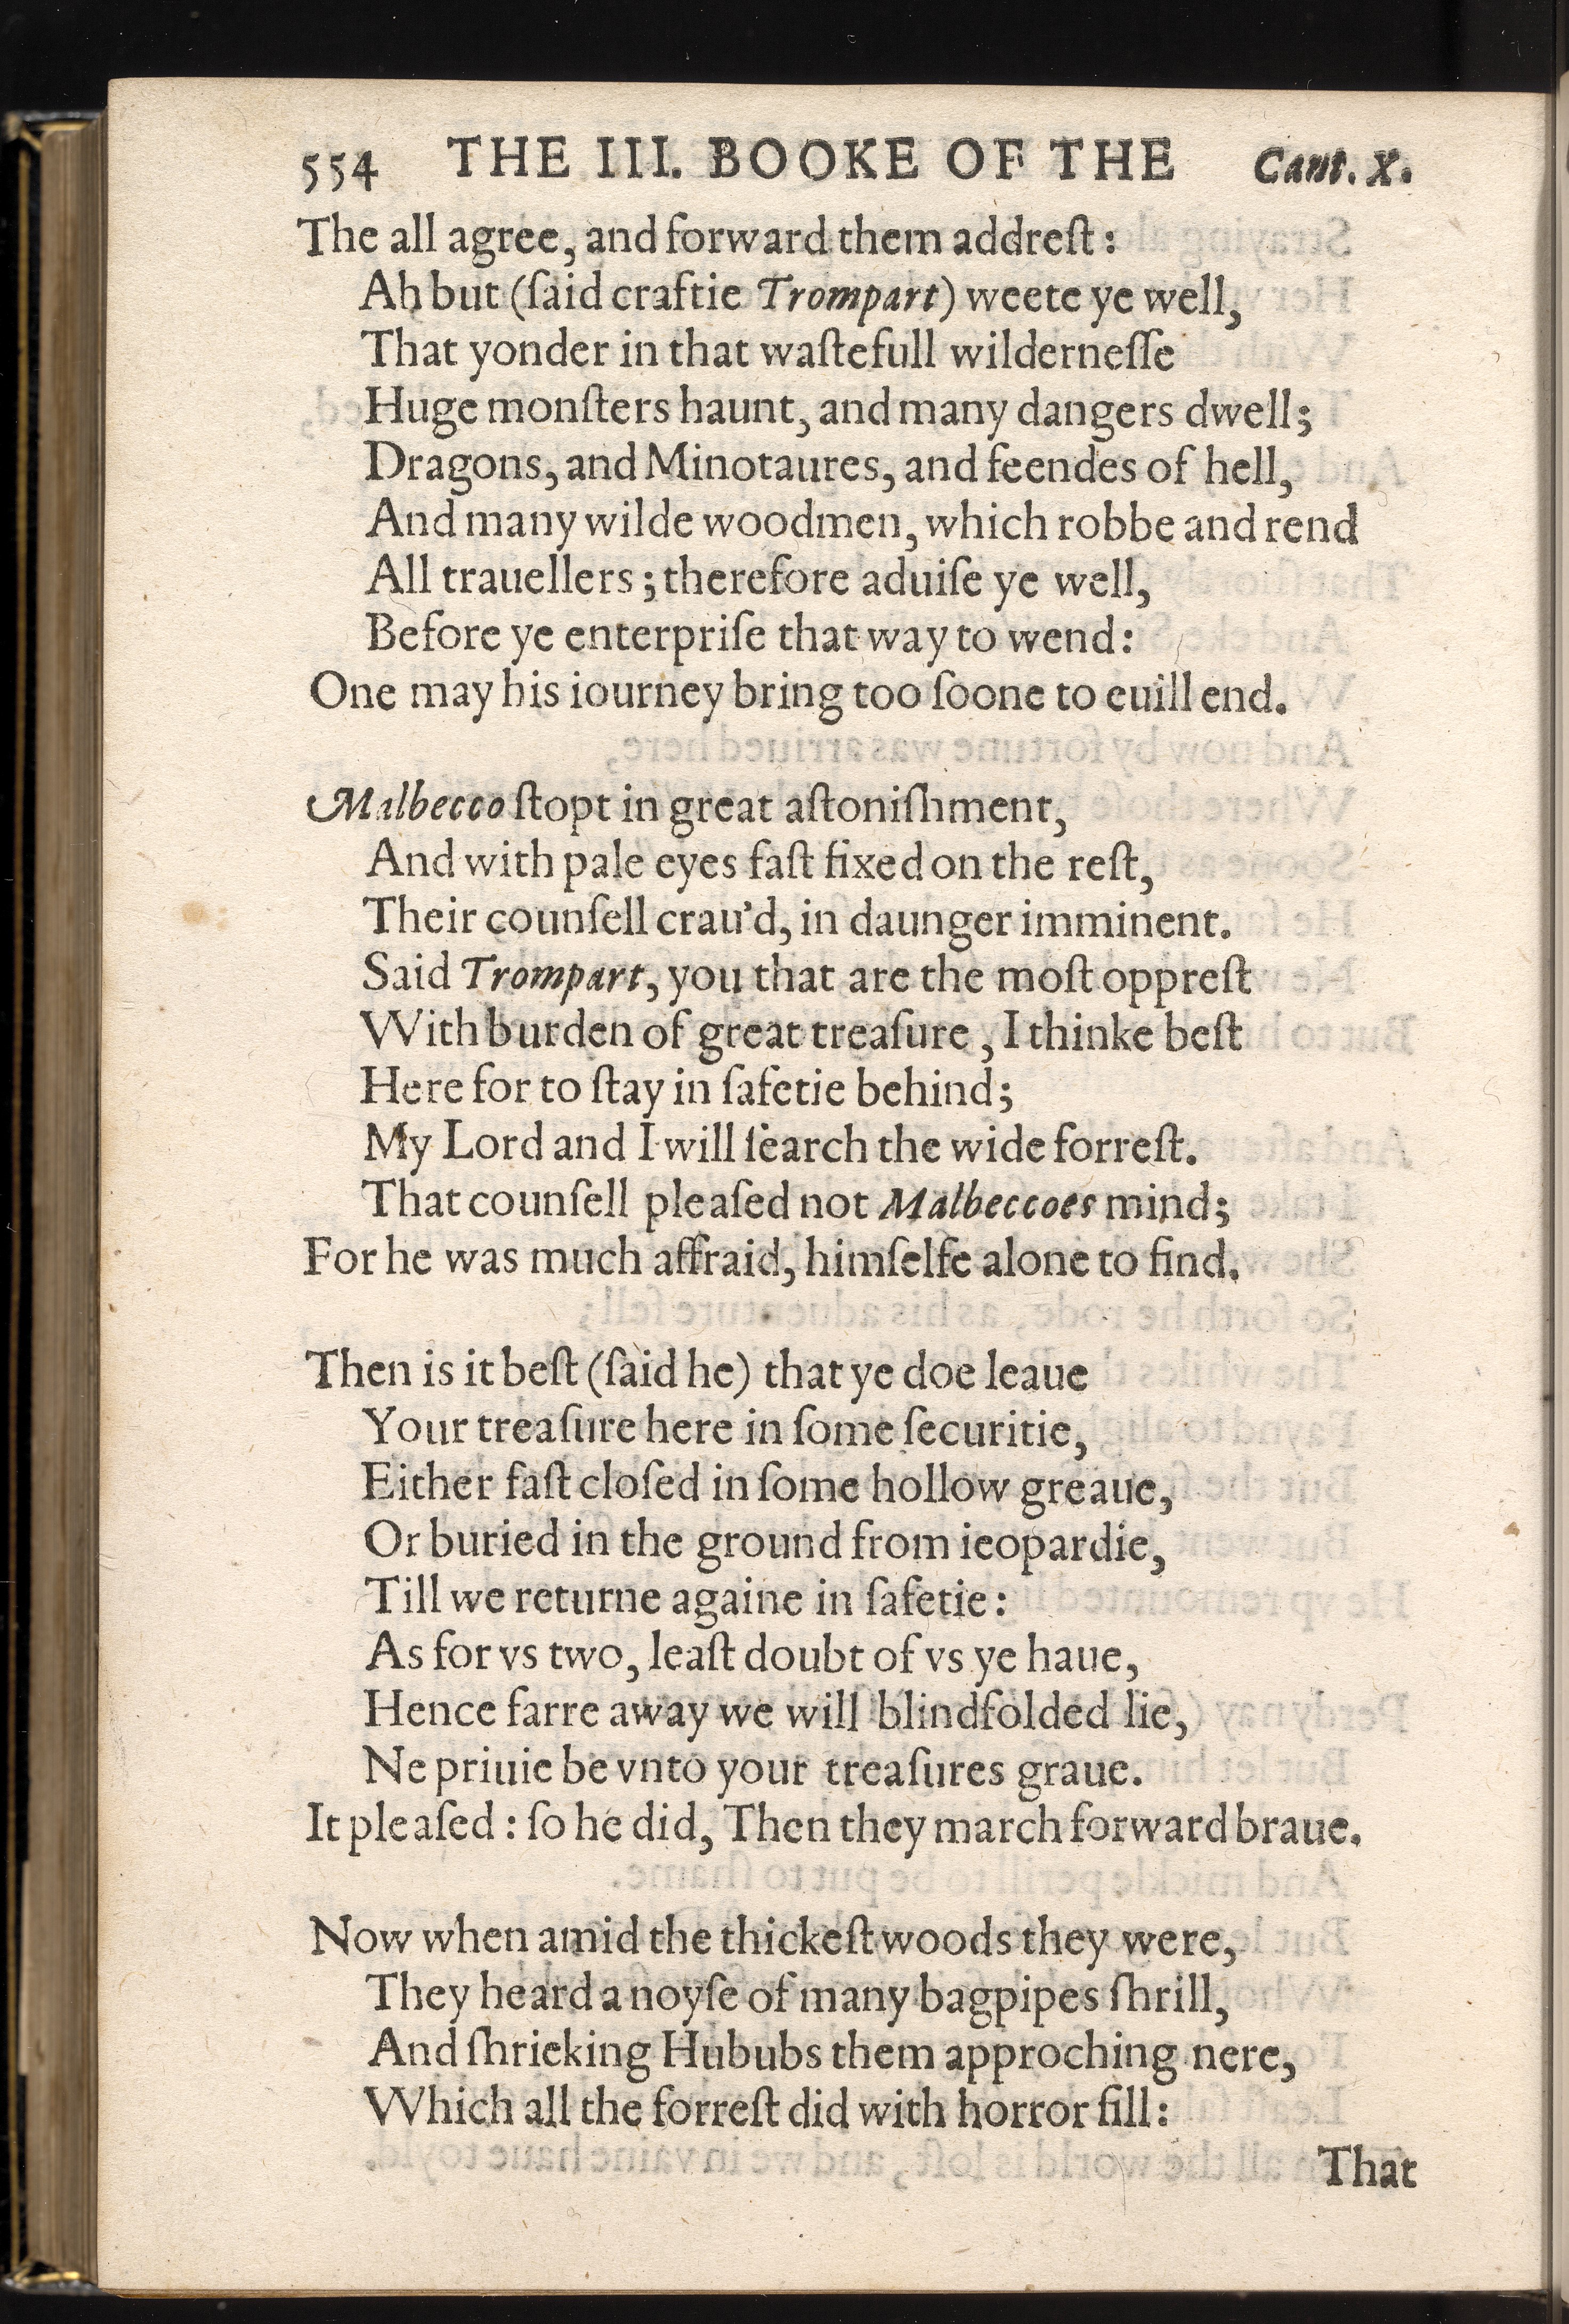 554 THE III. BOOKE OF THE Cant. X.
The all agree, and forward them addreſt:
Ah but (ſaid craftie Trompart) weete ye well,
That yonder in that waſtefull wilderneſſe
Huge monſters haunt, and many dangers dwell;
Dragons, and Minotaures, and feendes of hell,
And many wilde woodmen, which robbe and rend
All trauellers; therefore aduiſe ye well,
Before ye enterpriſe that way to wend:
One may his iourney bring too ſoone to euill end.
Malbecco ſtopt in great aſtoniſhment,
And with pale eyes faſt fixed on the reſt,
Their counſell crau'd, in daunger imminent.
Said Trompart, you that are the moſt oppreſt
With burden of great treaſure, I thinke beſt
Here for to ſtay in ſafetie behind;
My Lord and I will ſearch the wide forreſt.
That counſell pleaſed not Malbeccoes mind;
For he was much affraid, himſelfe alone to find.
Then is it beſt (ſaid he) that ye doe leaue
Your treaſure here in ſome ſecuritie,
Either faſt cloſed in ſome hollow greaue,
Or buried in the ground from ieopardie,
Till we returne againe in ſafetie:
As for vs two, leaſt doubt of vs ye haue,
Hence farre away we will blindfolded lie,
Ne priuie be vnto your treaſures graue.
It pleaſed: ſo he did, Then they march forward braue.
Now when amid the thickeſt woods they were,
They heard a noyſe of many bagpipes ſhrill,
And ſhrieking Hububs them approching nere,
Which all the forreſt did with horror fill:
That